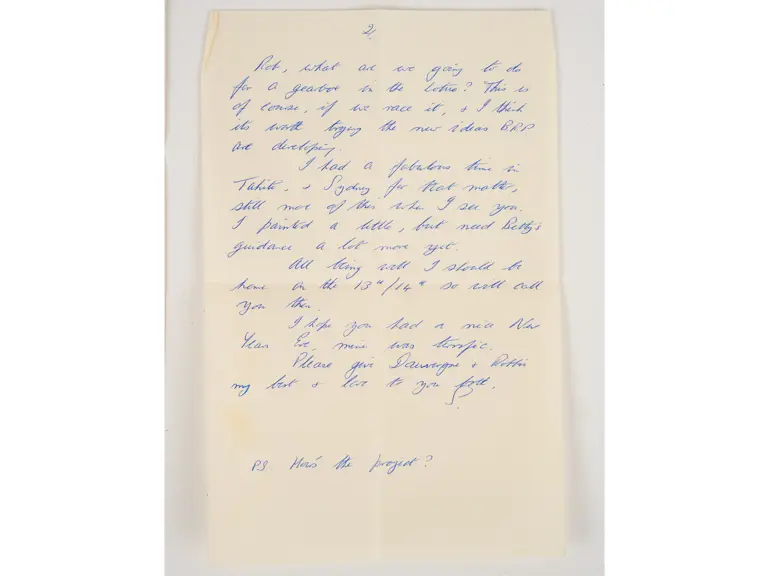 2/.
Rob, what are we going to do
for a gearbox in the Lotus? This is
of course, if we race it, & I think
its worth trying the new ideas B.R.P
are developing.
I had a fabulous time in
Tahiti, & Sydney for that matter,
still more of this when I see you.
I painted a little, but need Betty's
guidance a lot more yet.
All being well I should be
home on the 13th/14th so will call
you then.
I hope you had a nice New
Years Eve, mine was terrific.
Please give Dauvergne & Robbie
my best & love to you both.
S.
PS. How's the project?